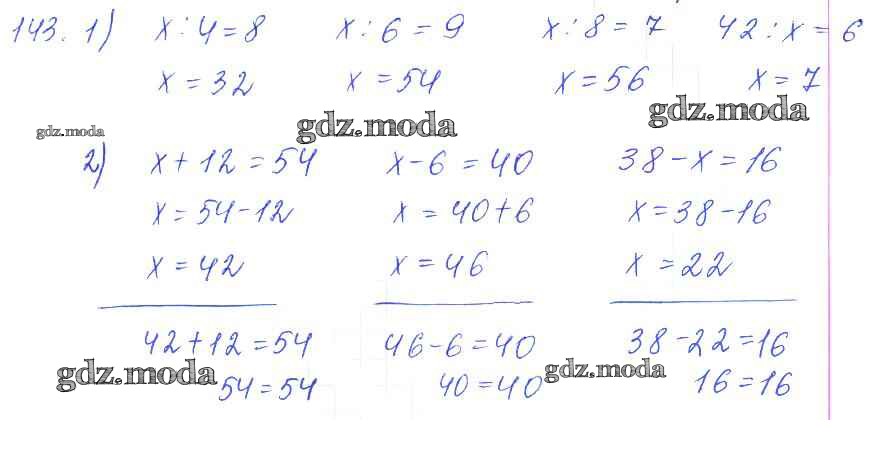 143. 1) x : 4 = 8 x : 6 = 9 x : 8 = 7 42 : x = 6
x = 32 x = 54 x = 56 x = 7
gdz.moda gdz.moda gdz.moda
2) x + 12 = 54 x - 6 = 40 38 - x = 16
x = 54 - 12 x = 40 + 6 x = 38 - 16
x = 42 x = 46 x = 22
42 + 12 = 54 46 - 6 = 40 38 - 22 = 16
gdz.moda 54 = 54 40 = 40 gdz.moda 16 = 16